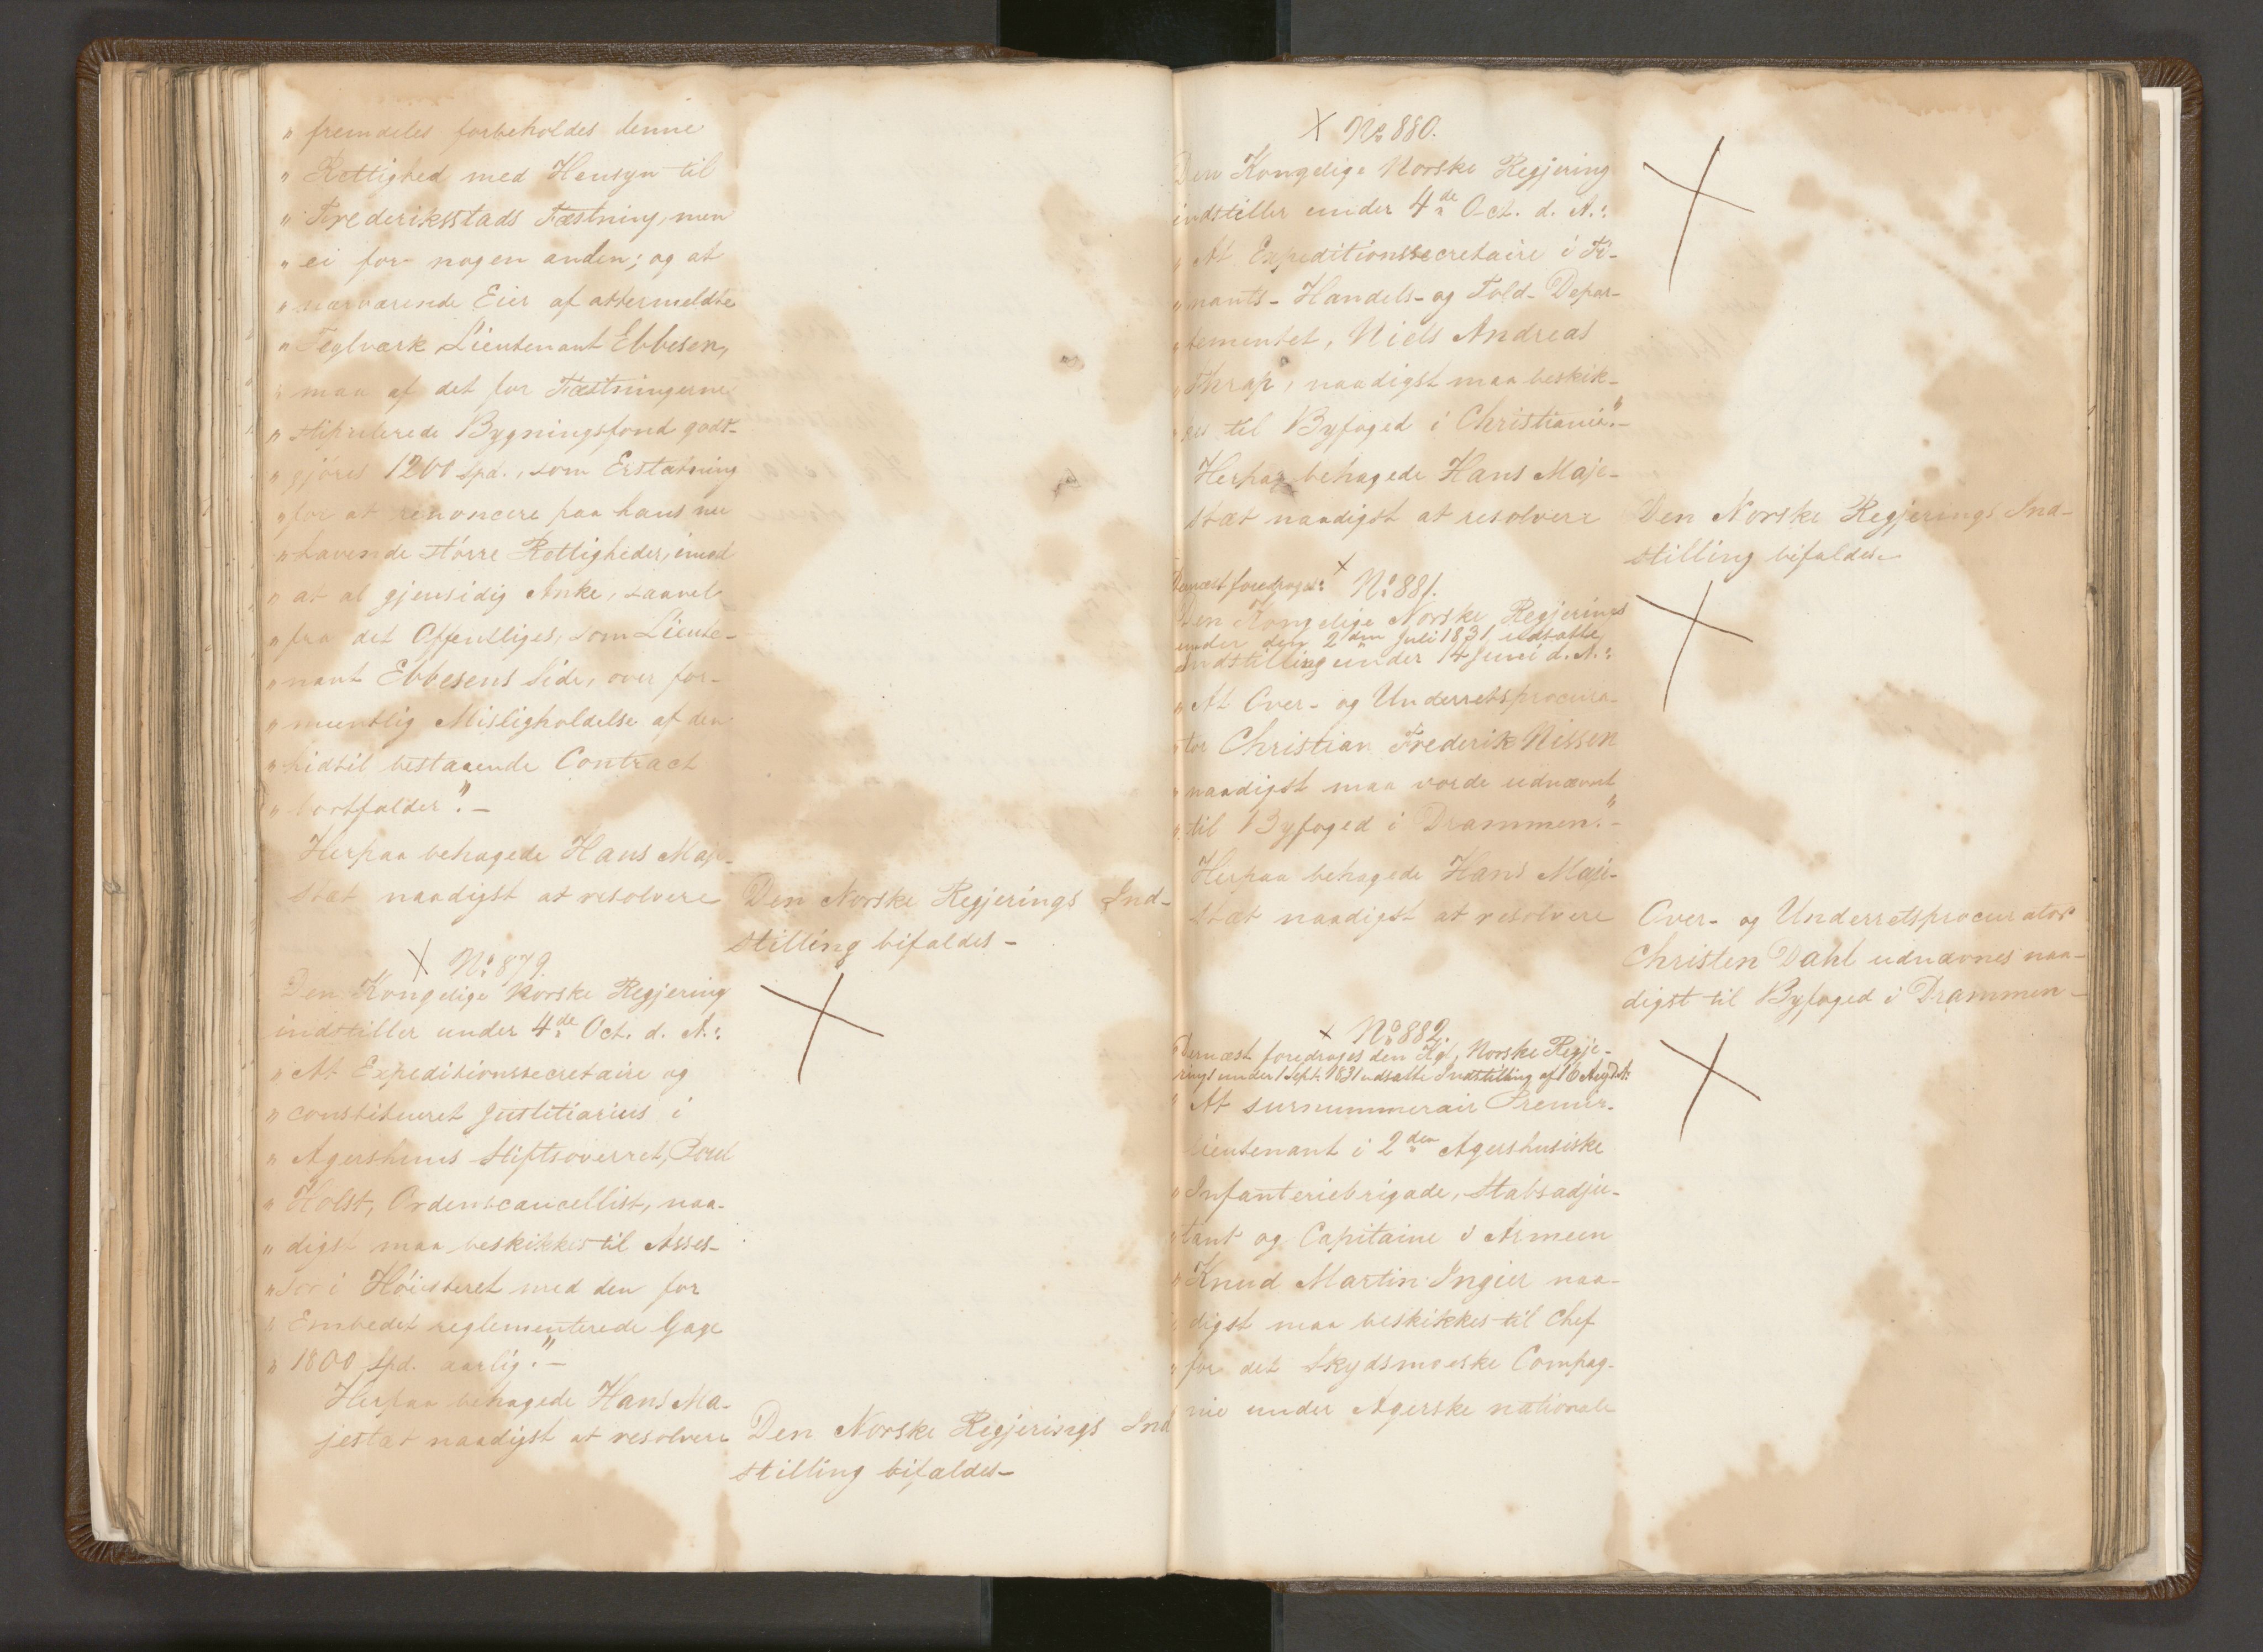 " fremdeles forbeholdes denne
" Rettighed med Hensyn til
" Frederiksstads Fæstning, men
" ei for nogen anden; og at
" nærværende Eier af attermeldte
" Teglværk, Lieutenant Ebbesen,
" maa af det for Fæstningerne
" stipulerede Bygningsfond godt-
" gjöres 1200 Spd., som Erstatning
" for at renoncere paa hans nu
" havende större Rettigheder, imod
" at al gjensidig Anke, saavel
" fra det Offentliges, som Lieute-
" nant Ebbesens Side, over for-
" meentlig Misligholdelse af den
" hidtil bestaaende Contract
" bortfalder". -
Herpaa behagede Hans Maje-
stæt naadigst at resolvere
Den Norske Regjerings Ind-
stilling bifaldes -
X No 879.
Den Kongelige Norske Regjering
indstiller under 4de Oct. d. A.:
" At Expeditionssecretaire og
" constitueret Justitiarius i
" Agershuus Stiftsoverret, Poul
" Holst, Ordenscancellist, naa-
" digst maa beskikkes til Asses-
" sor i Höiesteret med den for
" Embedet reglementerede Gage
" 1800 Spd. aarlig". -
Herpaa behagede Hans Ma-
jestæt naadigst at resolvere
Den Norske Regjerings Ind
stilling bifaldes -
X No 880.
Den Kongelige Norske Regjering
indstiller under 4de Oct. d. A.:
" At Expeditionssecretaire i Fi-
" nants- Handels- og Told- Depar-
" tementet, Niels Andreas
" Thrap, naadigst maa beskik-
" kes til Byfoged i Christiania". -
Herpaa behagede Hans Maje-
stæt naadigst at resolvere
Den Norske Regjerings Ind-
stilling bifaldes -
Dernæst foredroges: X No 881.
Den Kongelige Norske Regjerings
under den 2den Juli 1831 udsatte
Indstilling under 14 Juni d. A.:
" At Over- og Underretsprocura-
" tor Christian Frederik Nissen
" naadigst maa vorde udnævnt
" til Byfoged i Drammen". -
Herpaa behagede Hans Maje-
stæt naadigst at resolvere
Over- og Underretsprocurator
Christen Dahl udnævnes naa-
digst til Byfoged i Drammen -
X No 882.
Dernæst foredroges den Kgl. Norske Regje-
rings under 1 Sept. 1831 udsatte Indstilling af 16 Aug. d. A:
" At surnummerair Premier-
lieutenant i 2den Agershusiske
" Infanteriebrigade, Stabsadju-
" tant og Capitaine i Armeen
" Knud Martin Ingier naa-
" digst maa beskikkes til Chef
" for det Skydsmoeske Compag-
nie under Agerske nationale